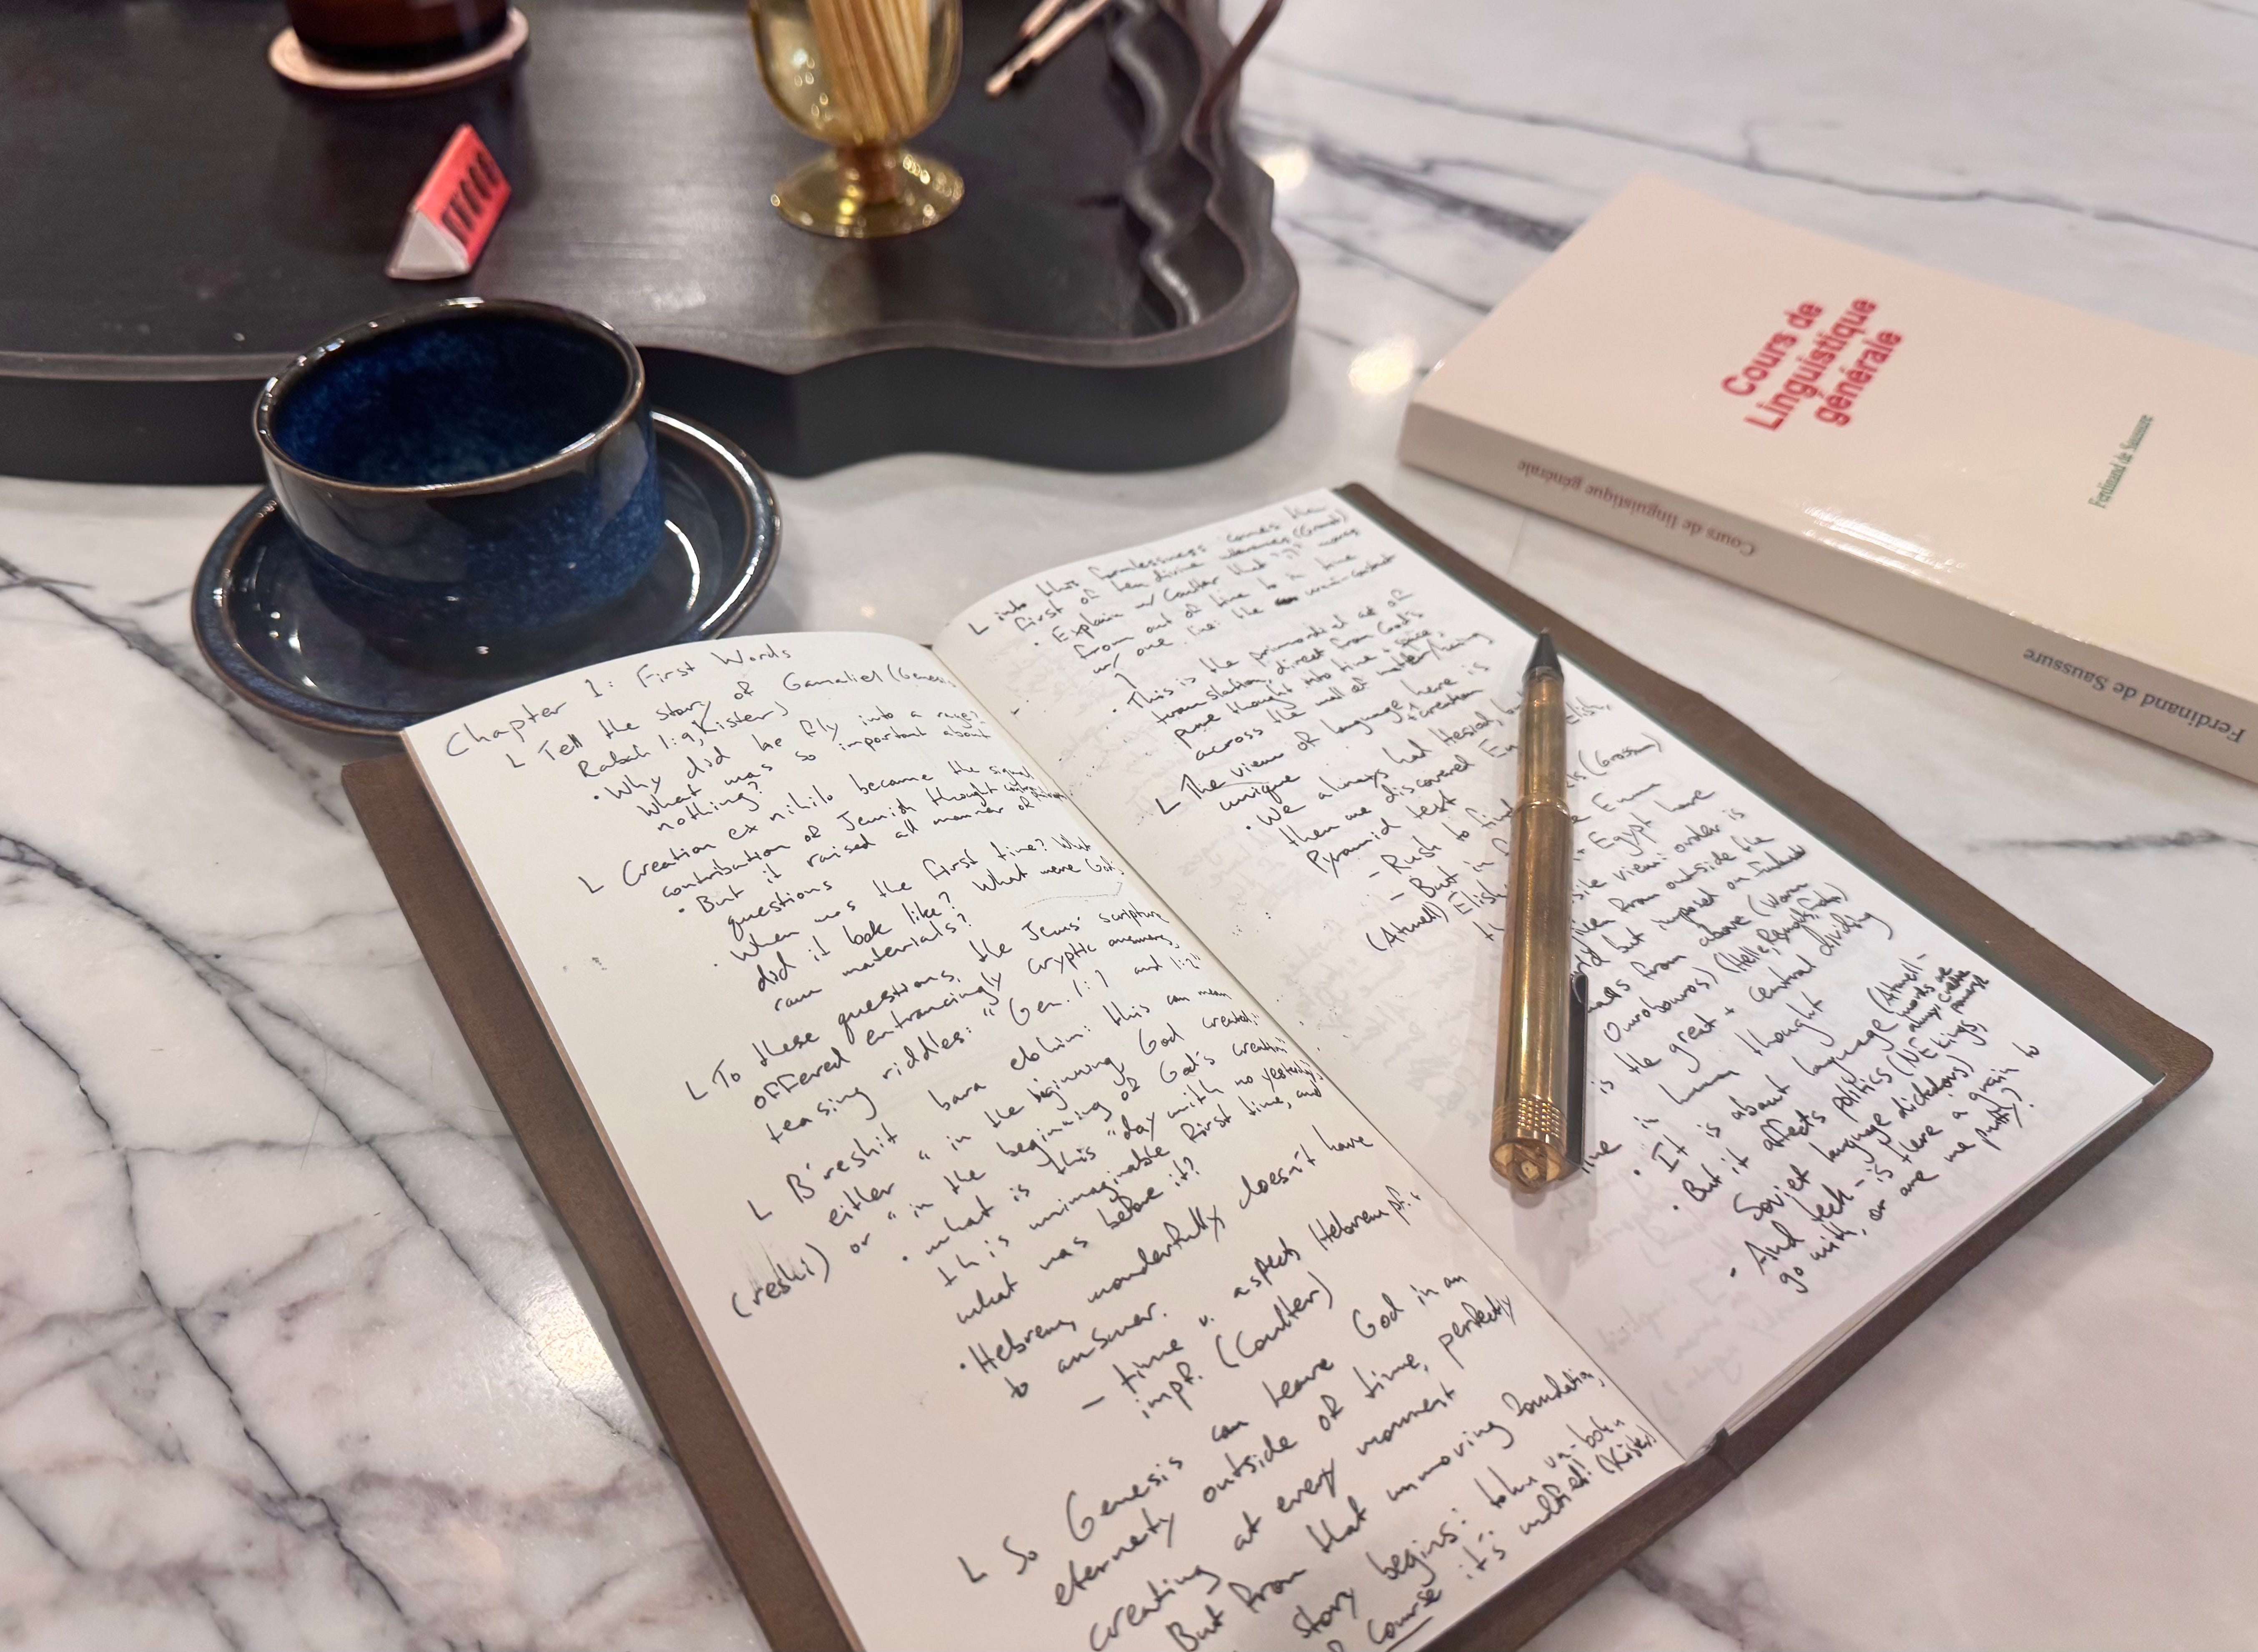 Chapter 1: First Words
L Tell the story of Gamaliel (Genesis
Rabah 1:9, Kister)
• Why did he fly into a rage?
What was so important about
nothing?
L Creation ex nihilo became the signal
contribution of Jewish thought
• But it raised all manner of
questions
• When was the first time? What
did it look like? What were God's
raw materials?
L To these questions, the Jews' scripture
offered entrancingly cryptic answers,
teasing riddles: "Gen. 1:1 and 1:2"
L B'reshit bara elohim: this can mean
either "in the beginning God created;"
(reshit) or "in the beginning of God's creation"
• what is this "day with no yesterday,"
this unimaginable first time, and
what was before it?
• Hebrew, wonderfully doesn't have
to answer.
- time v. aspect, Hebrew pf. v.
impf. (Coulter)
L So Genesis can leave God in an
eternity outside of time, perfectly
creating at every moment
But from that unmoving foundation,
story begins: tohu va-bohu
course it's
(Kister)
L into this formlessness comes the
first of ten divine utterances
• Explain w/ Coulter that moves
from out of time to in time
w/ one line: the
• This is the primordial act of
translation, direct from God's
pure thought into time + space,
across the wall of matter/being
L The view of language + creation here is
unique
• We always had Hesiod, but
then we discovered En Elish,
Pyramid text
- Rush to find ls
- But in Enuma
(Atwell) Elish + Egypt have
view: order is
from outside the
but imposed on
from above
Ouroboros)
is the great + central dividing
line in human thought
• It is about language (Atwell -
words are
always creative
power
• But it affects politics (NE kings,
Soviet language dictators)
- And tech - is there a grain to
go with, or are we putty?
Cours de
Linguistique
générale
Ferdinand de Saussure
Cours de linguistique générale
Ferdinand de Saussure